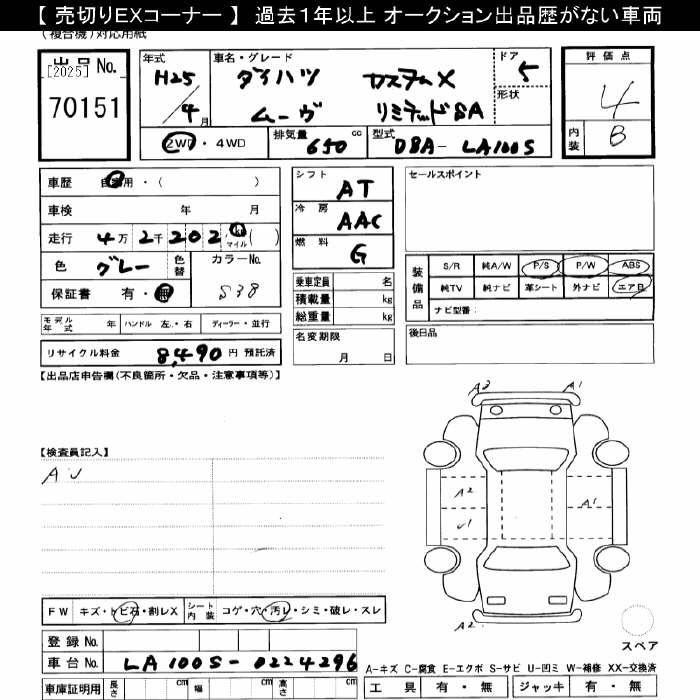 【 売切りEXコーナー 】 過去１年以上 オークション出品歴がない車両
(複合機)対応用紙
出品 No.
[2025]
70151
年式
H25
／4月
車名・グレード
ダイハツ カスタムX
ムーヴ リミテッドSA
ドア
5
形状
評価点
4
内装
B
2WD・4WD
排気量
650 cc
型式
DBA- LA100S
車歴 自家用・( )
車検 年 月
走行 4万 2千 202 km マイル ( )
色 グレー 色替 カラーNo.
S38
保証書 有・無
シフト AT
冷房 AAC
燃料 G
乗車定員 名
積載量 kg
総重量 kg
セールスポイント
装備品
S/R 純A/W P/S P/W ABS
純TV 純ナビ 革シート 外ナビ エアB
ナビ型番：
モデル年式 年 ハンドル 左・右 ディーラー・並行
名変期限
月 日
後日品
リサイクル料金 8,490 円 預託済
【出品店申告欄(不良箇所・欠品・注意事項等)】
【検査員記入】
AU
A2 A1
A2
U1
A1
A2
スペア
FW キズ・トビ石・割レX シート内装 コゲ・穴・汚レ・シミ・破レ・スレ
登録 No.
車台 No. LA100S-0224296
A-キズ C-腐食 E-エクボ S-サビ U-凹ミ W-補修 XX-交換済
車庫証明用 長さ cm 幅 cm 高さ cm
工具 有・無 ジャッキ 有・無